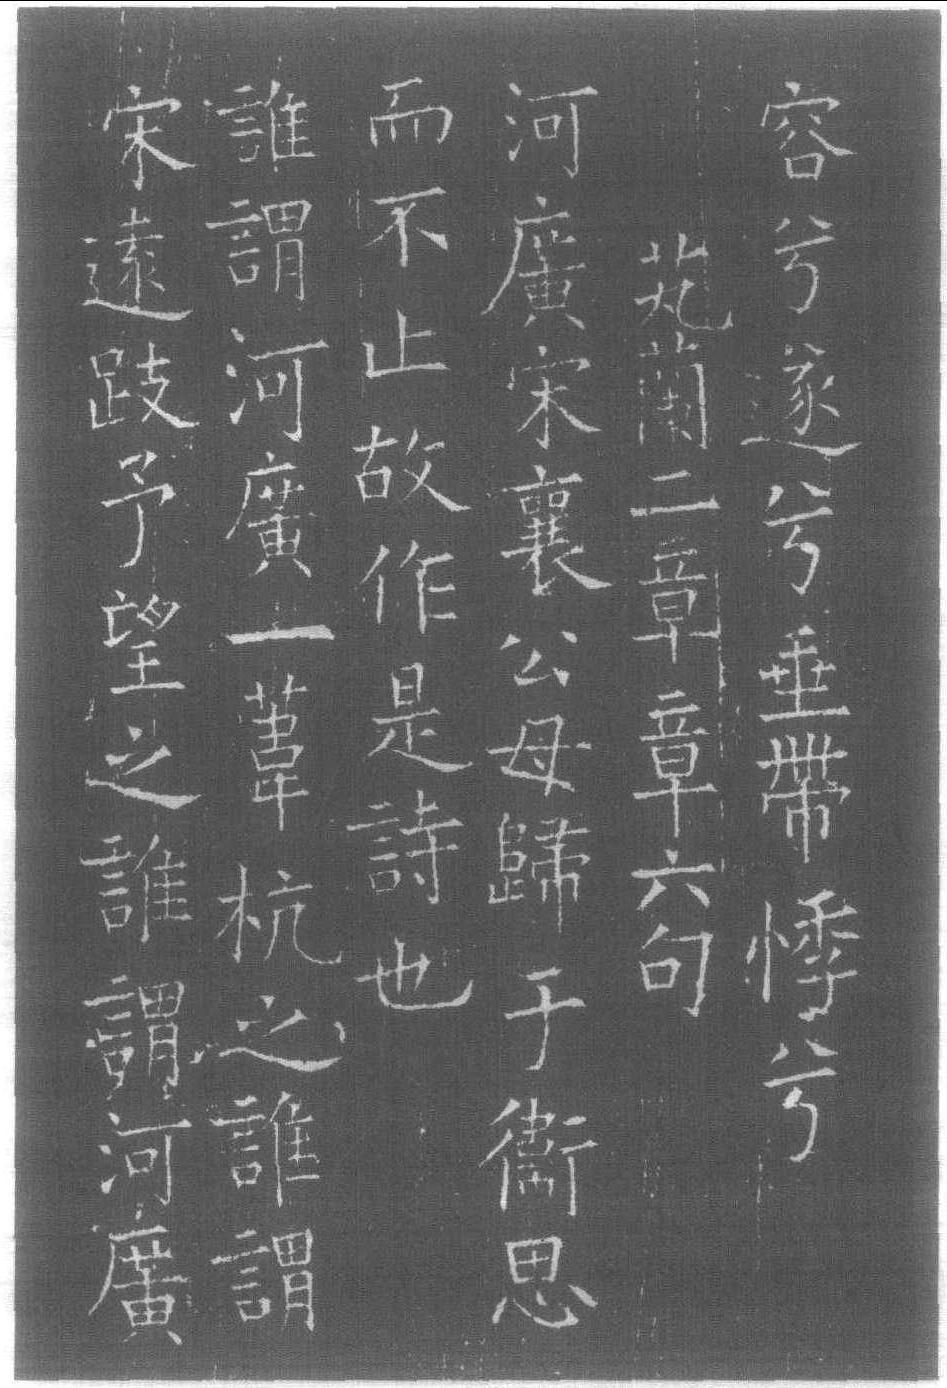 容兮遂兮垂帶悸兮
芄蘭二章章六句
河廣宋襄公母歸于衛思
而不止故作是詩也
誰謂河廣一葦杭之誰謂
宋遠跂予望之誰謂河廣